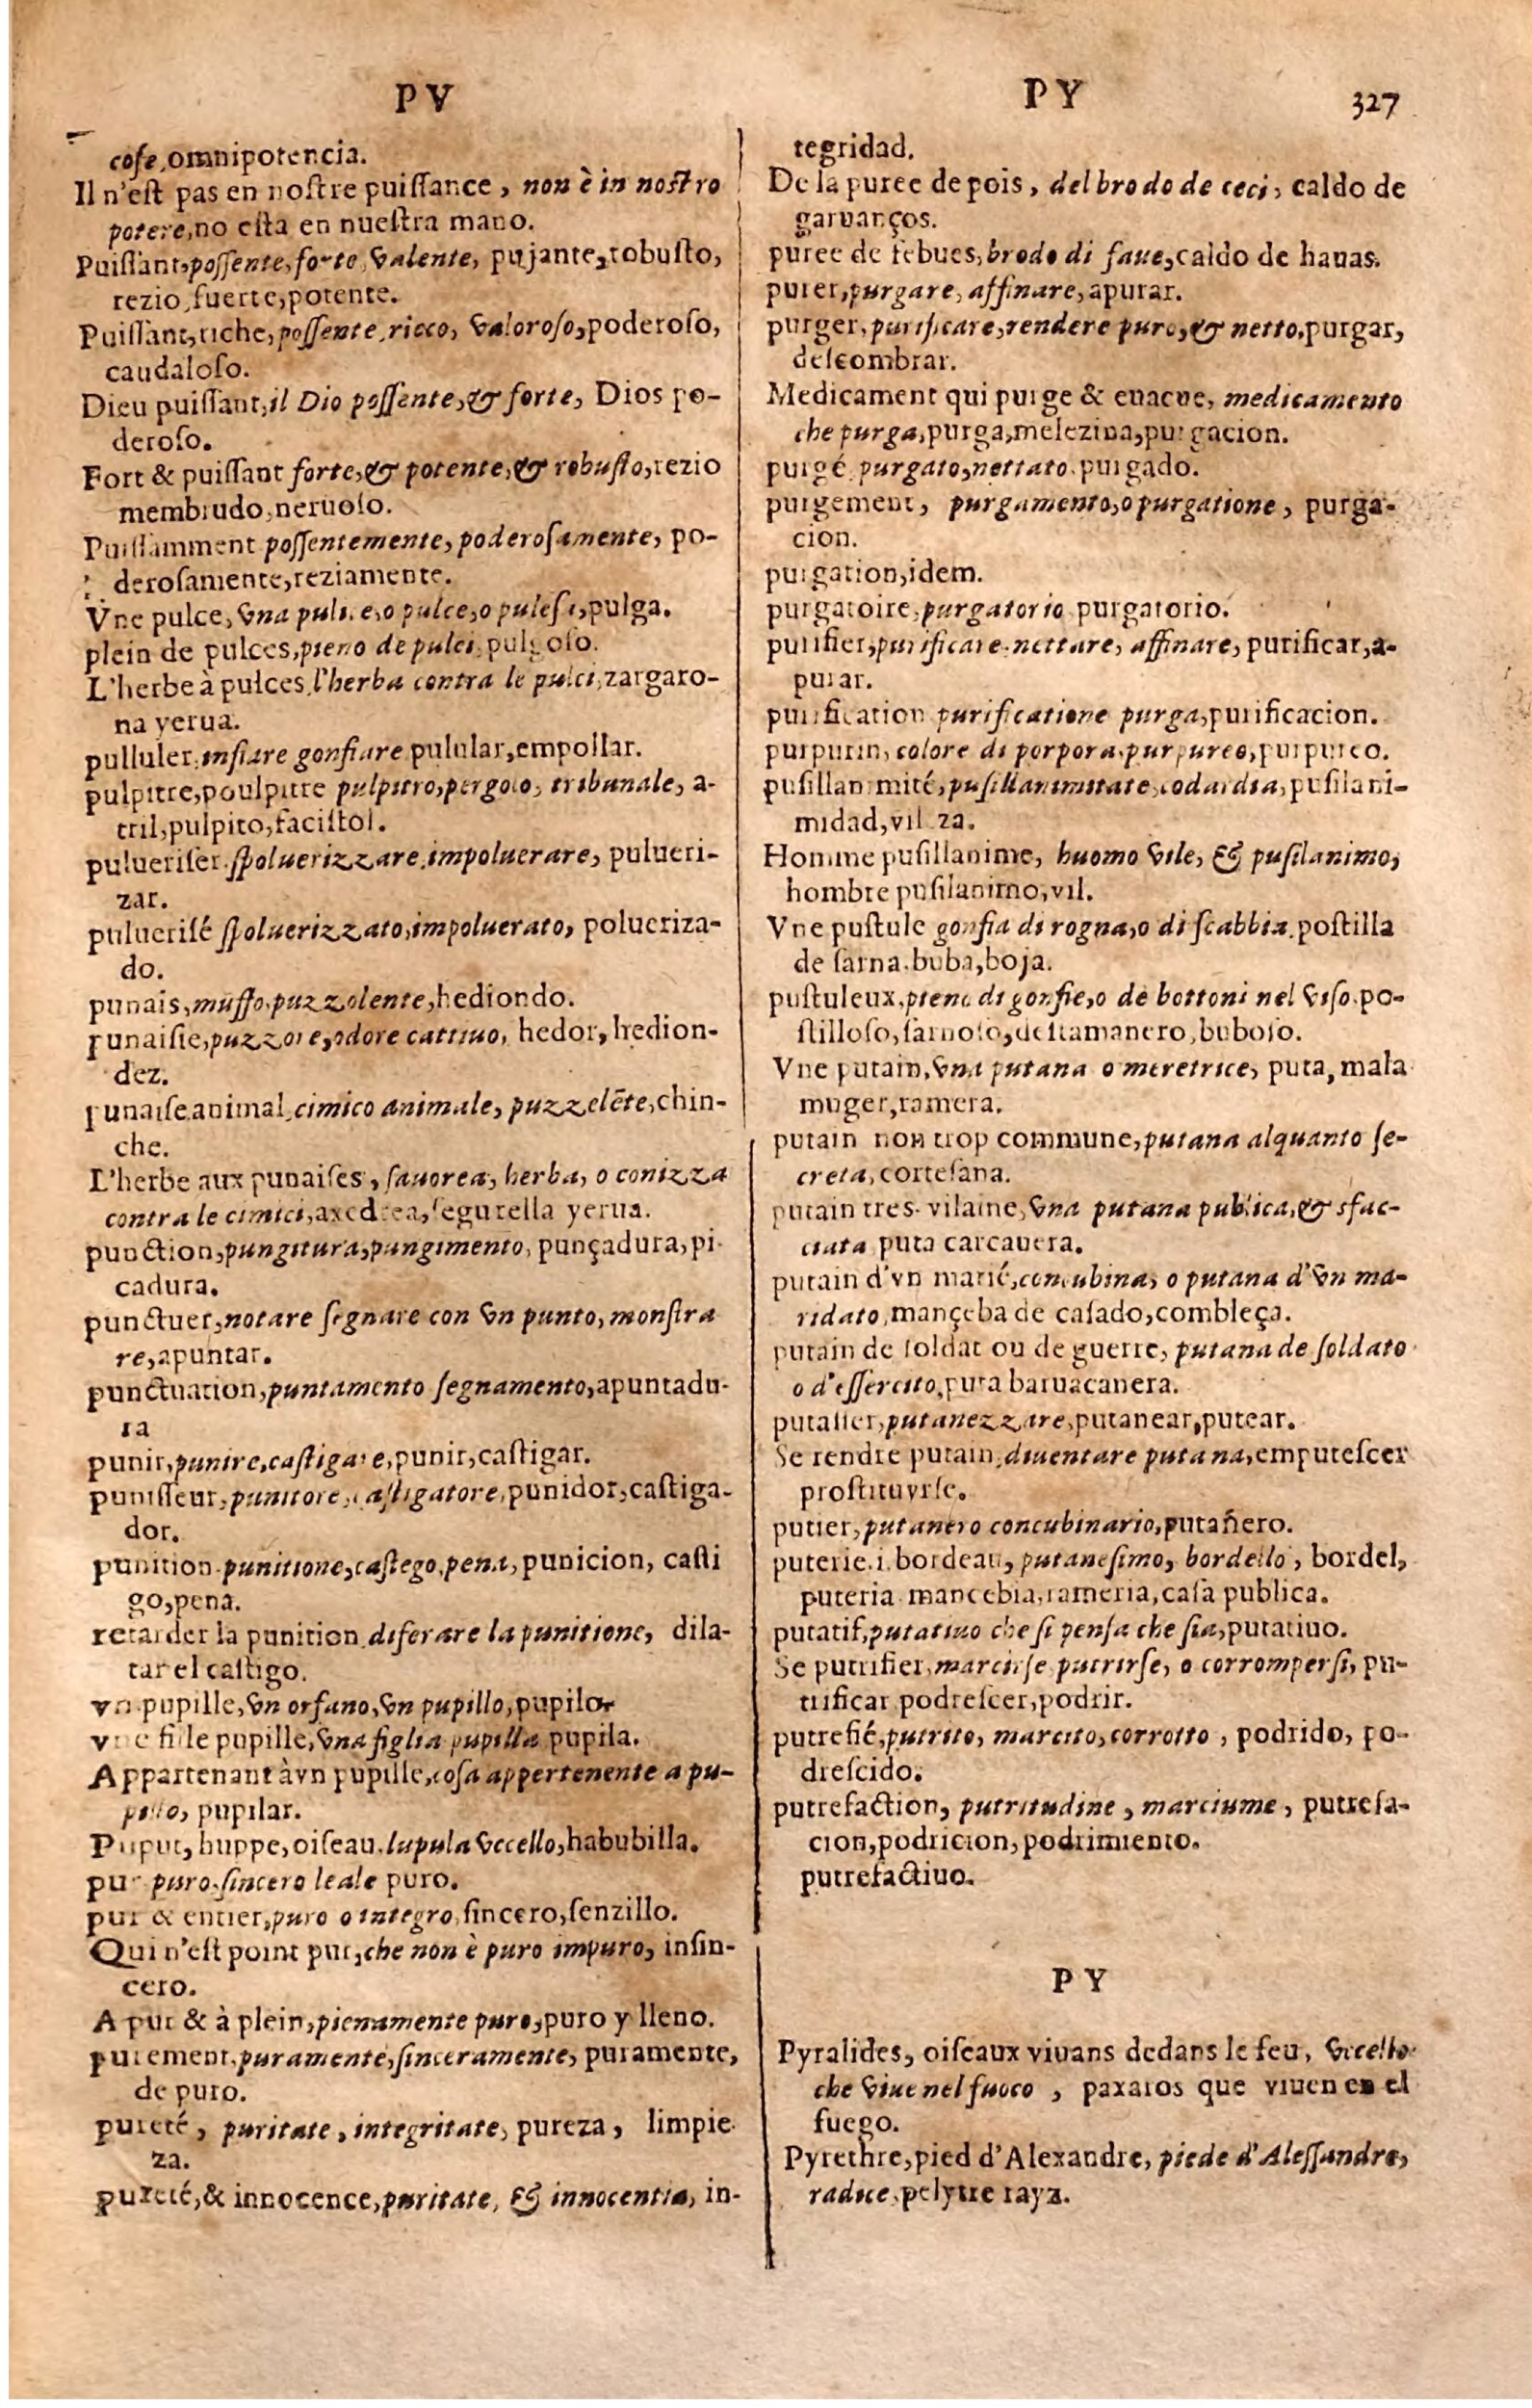 PV
PY
327
cose, omnipotencia.
Il n'est pas en nostre puissance, non è in nostro
potere, no esta en nuestra mano.
Puissant, possente, forte, valente, pujante, robusto,
rezio, fuerte, potente.
Puissant, riche, possente, ricco, valoroso, poderoso,
caudaloso.
Dieu puissant, il Dio possente, & forte, Dios po-
deroso.
Fort & puissant forte, & potente, & robusto, rezio
membrudo, neruoso.
Puissamment possentemente, poderosamente, po-
derosamente, reziamente.
Vne pulce, vna pulice, o pulce, o pulesi, pulga.
plein de pulces, pieno de pulci, pulgoso.
L'herbe à pulces, l'herba contra le pulci, zargaro-
na yerua.
pulluler, insiare gonfiare pulular, empollar.
pulpitre, poulpitre pulpitro, pergolo, tribunale, a-
tril, pulpito, facistol.
pulueriser. spoluerizzare, impoluerare, pulueri-
zar.
puluerisé spoluerizzato, impoluerato, polueriza-
do.
punais, muffo, puzzolente, hediondo.
punaisie, puzzore, odore cattiuo, hedor, hedion-
dez.
punaise animal, cimico animale, puzzelēte, chin-
che.
L'herbe aux punaises, sauorea, herba, o conizza
contra le cimici, axedrea, segurella yerua.
punction, pungitura, pungimento, punçadura, pi-
cadura.
punctuer, notare segnare con vn punto, monstra
re, apuntar.
punctuation, puntamento segnamento, apuntadu-
ra
punir, punire, castigare, punir, castigar.
punisseur, punitore, castigatore, punidor, castiga-
dor.
punition. punitione, castego, pena, punicion, casti
go, pena.
retarder la punition, diferare la punitione, dila-
tar el castigo.
vn pupille, vn orfano, vn pupillo, pupilor
vne fille pupille, vna figlia pupilla pupila.
Appartenant à vn pupille, cosa appertenente a pu-
pillo, pupilar.
Puput, huppe, oiseau. lupula vccello, habubilla.
pur puro, sincero leale puro.
pur & entier, puro o integro, sincero, senzillo.
Qui n'est point pur, che non è puro impuro, insin-
cero.
A pur & à plein, pienamente puro, puro y lleno.
purement, puramente, sinceramente, puramente,
de puro.
pureté, puritate, integritate, pureza, limpie-
za.
pureté, & innocence, puritate, & innocentia, in-
tegridad.
De la puree de pois, del brodo de ceci, caldo de
garuanços.
puree de febues, brodo di faue, caldo de hauas.
purer, purgare, affinare, apurar.
purger, purificare, rendere puro, & netto, purgar,
descombrar.
Medicament qui purge & euacue, medicamento
che purga, purga, melezina, purgacion.
purgé, purgato, nettato. purgado.
purgement, purgamento, o purgatione, purga-
cion.
purgation, idem.
purgatoire, purgatorio purgatorio.
purifier, purificare nettare, affinare, purificar, a-
purar.
purification purificatione purga, purificacion.
purpurin, colore di porpora, purpureo, purpureo.
pusillanimité, pusillanimitate, codardia, pusilani-
midad, vileza.
Homme pusillanime, huomo vile, & pusilanimo,
hombre pusilanimo, vil.
Vne pustule gonfia di rogna, o di scabbia, postilla
de sarna, buba, boja.
pustuleux, pieno di gonfie, o de bottoni nel viso. po-
stilloso, sarnoso, destamanero, buboso.
Vne putain, vna putana o meretrice, puta, mala
muger, ramera.
putain non trop commune, putana alquanto se-
creta, cortesana.
putain tres-vilaine, vna putana publica, & sfac-
ciata puta carcauera.
putain d'vn marié, concubina, o putana d'vn ma-
ridato, mançeba de casado, combleça.
putain de soldat ou de guerre, putana de soldato
o d'essercito, puta baruacanera.
putasser, putanezzare, putanear, putear.
Se rendre putain, diuentare putana, emputescer
prostituyrse.
putier, putanero concubinario, putañero.
puterie. i. bordeau, putanesimo, bordello, bordel,
puteria mancebia, rameria, casa publica.
putatif, putatiuo che si pensa che sia, putatiuo.
Se putrifier, marcirse putrirse, o corrompersi, pu-
trificar podrescer, podrir.
putrefié, putrito, marcito, corrotto, podrido, po-
drescido.
putrefaction, putritudine, marciume, putrefa-
cion, podricion, podrimiento.
putrefactiuo.
PY
Pyralides, oiseaux viuans dedans le feu, vccello
che viue nel fuoco, paxaros que viuen en el
fuego.
Pyrethre, pied d'Alexandre, piede d'Alessandro,
radice, pelytre rayz.